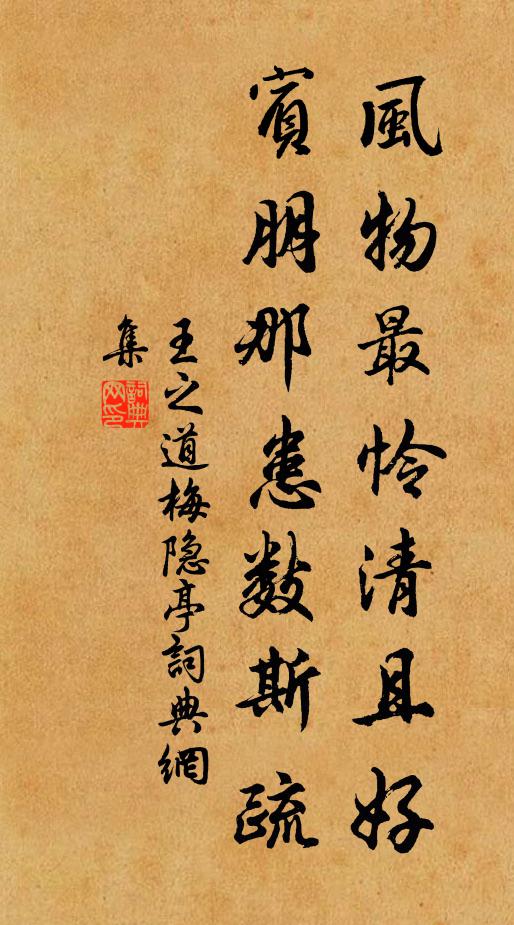 風物最怜清且好
賓朋那患数斯疏
王之道梅隐亭詞典網
集
詞典網印